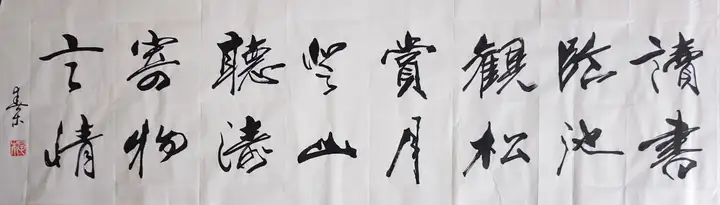 讀書
臨池
觀松
賞月
登山
聽濤
寄物
言情